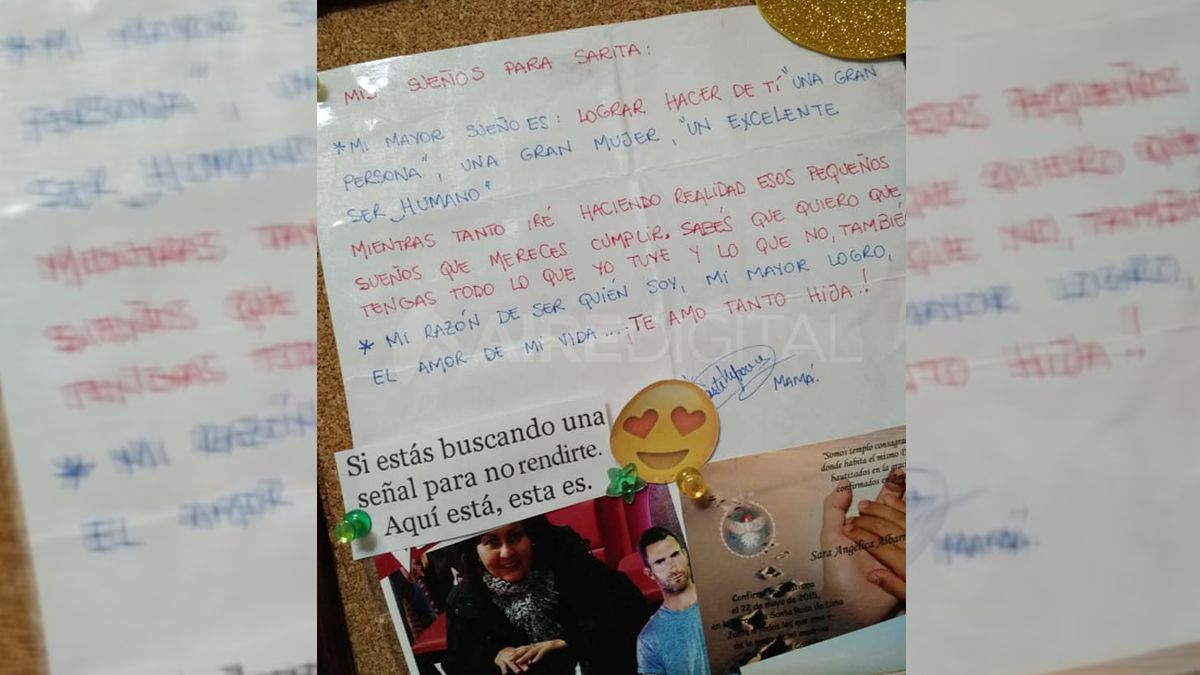 MIS SUEÑOS PARA SARITA:
*MI MAYOR SUEÑO ES: LOGRAR HACER DE TÍ "UNA GRAN
PERSONA", UNA GRAN MUJER, "UN EXCELENTE
SER HUMANO"
MIENTRAS TANTO IRÉ HACIENDO REALIDAD ESOS PEQUEÑOS
SUEÑOS QUE MERECES CUMPLIR. SABÉS QUE QUIERO QUE
TENGAS TODO LO QUE YO TUVE Y LO QUE NO, TAMBIÉ
* MI RAZÓN DE SER QUIÉN SOY, MI MAYOR LOGRO,
EL AMOR DE MI VIDA.... ¡TE AMO TANTO HIJA!!
AIREDIGITAL
MAMÁ.
Si estás buscando una
señal para no rendirte.
Aquí está, esta es.
"Somos templo consagra
donde habita el mismo
bautizados en la graci
confirmados en
Sara Angélica Albarr
el 22 de mayo de 2015,
Santa Rosa de Lima